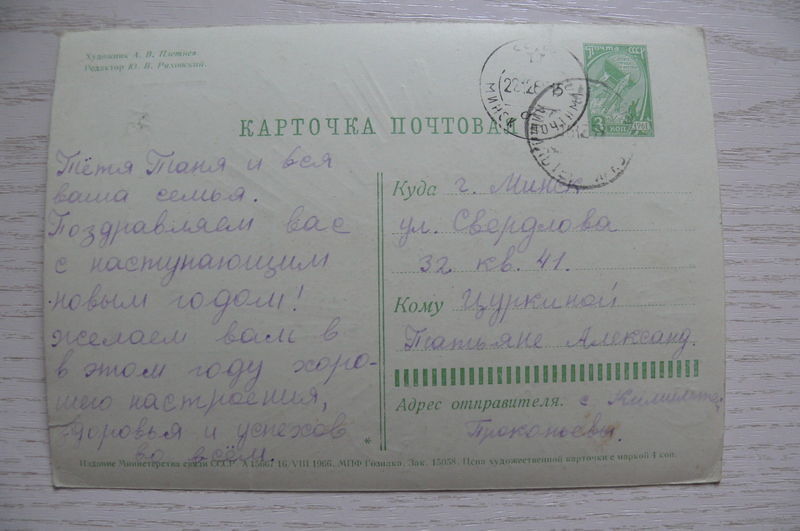 Художник А. В. Плетнев
Редактор Ю. В. Ряховский.
ПОЧТА СССР
3 КОП. 1961
МИНСК
КАРТОЧКА ПОЧТОВАЯ
Тётя Таня и вся
ваша семья.
Поздравляем вас
с наступающим
новым годом!
желаем вам в
в этом году хоро-
шего настроения,
здоровья и успехов
во всём.
Куда г. Минск
ул. Свердлова
32 кв. 41.
Кому Цуркиной
Татьяне Александ.
Адрес отправителя. с.
Прокопьевы.
Издание Министерства связи СССР. А 15667 16/VIII 1966. МПФ Гознака. Зак. 15058. Цена художественной карточки с маркой 4 коп.